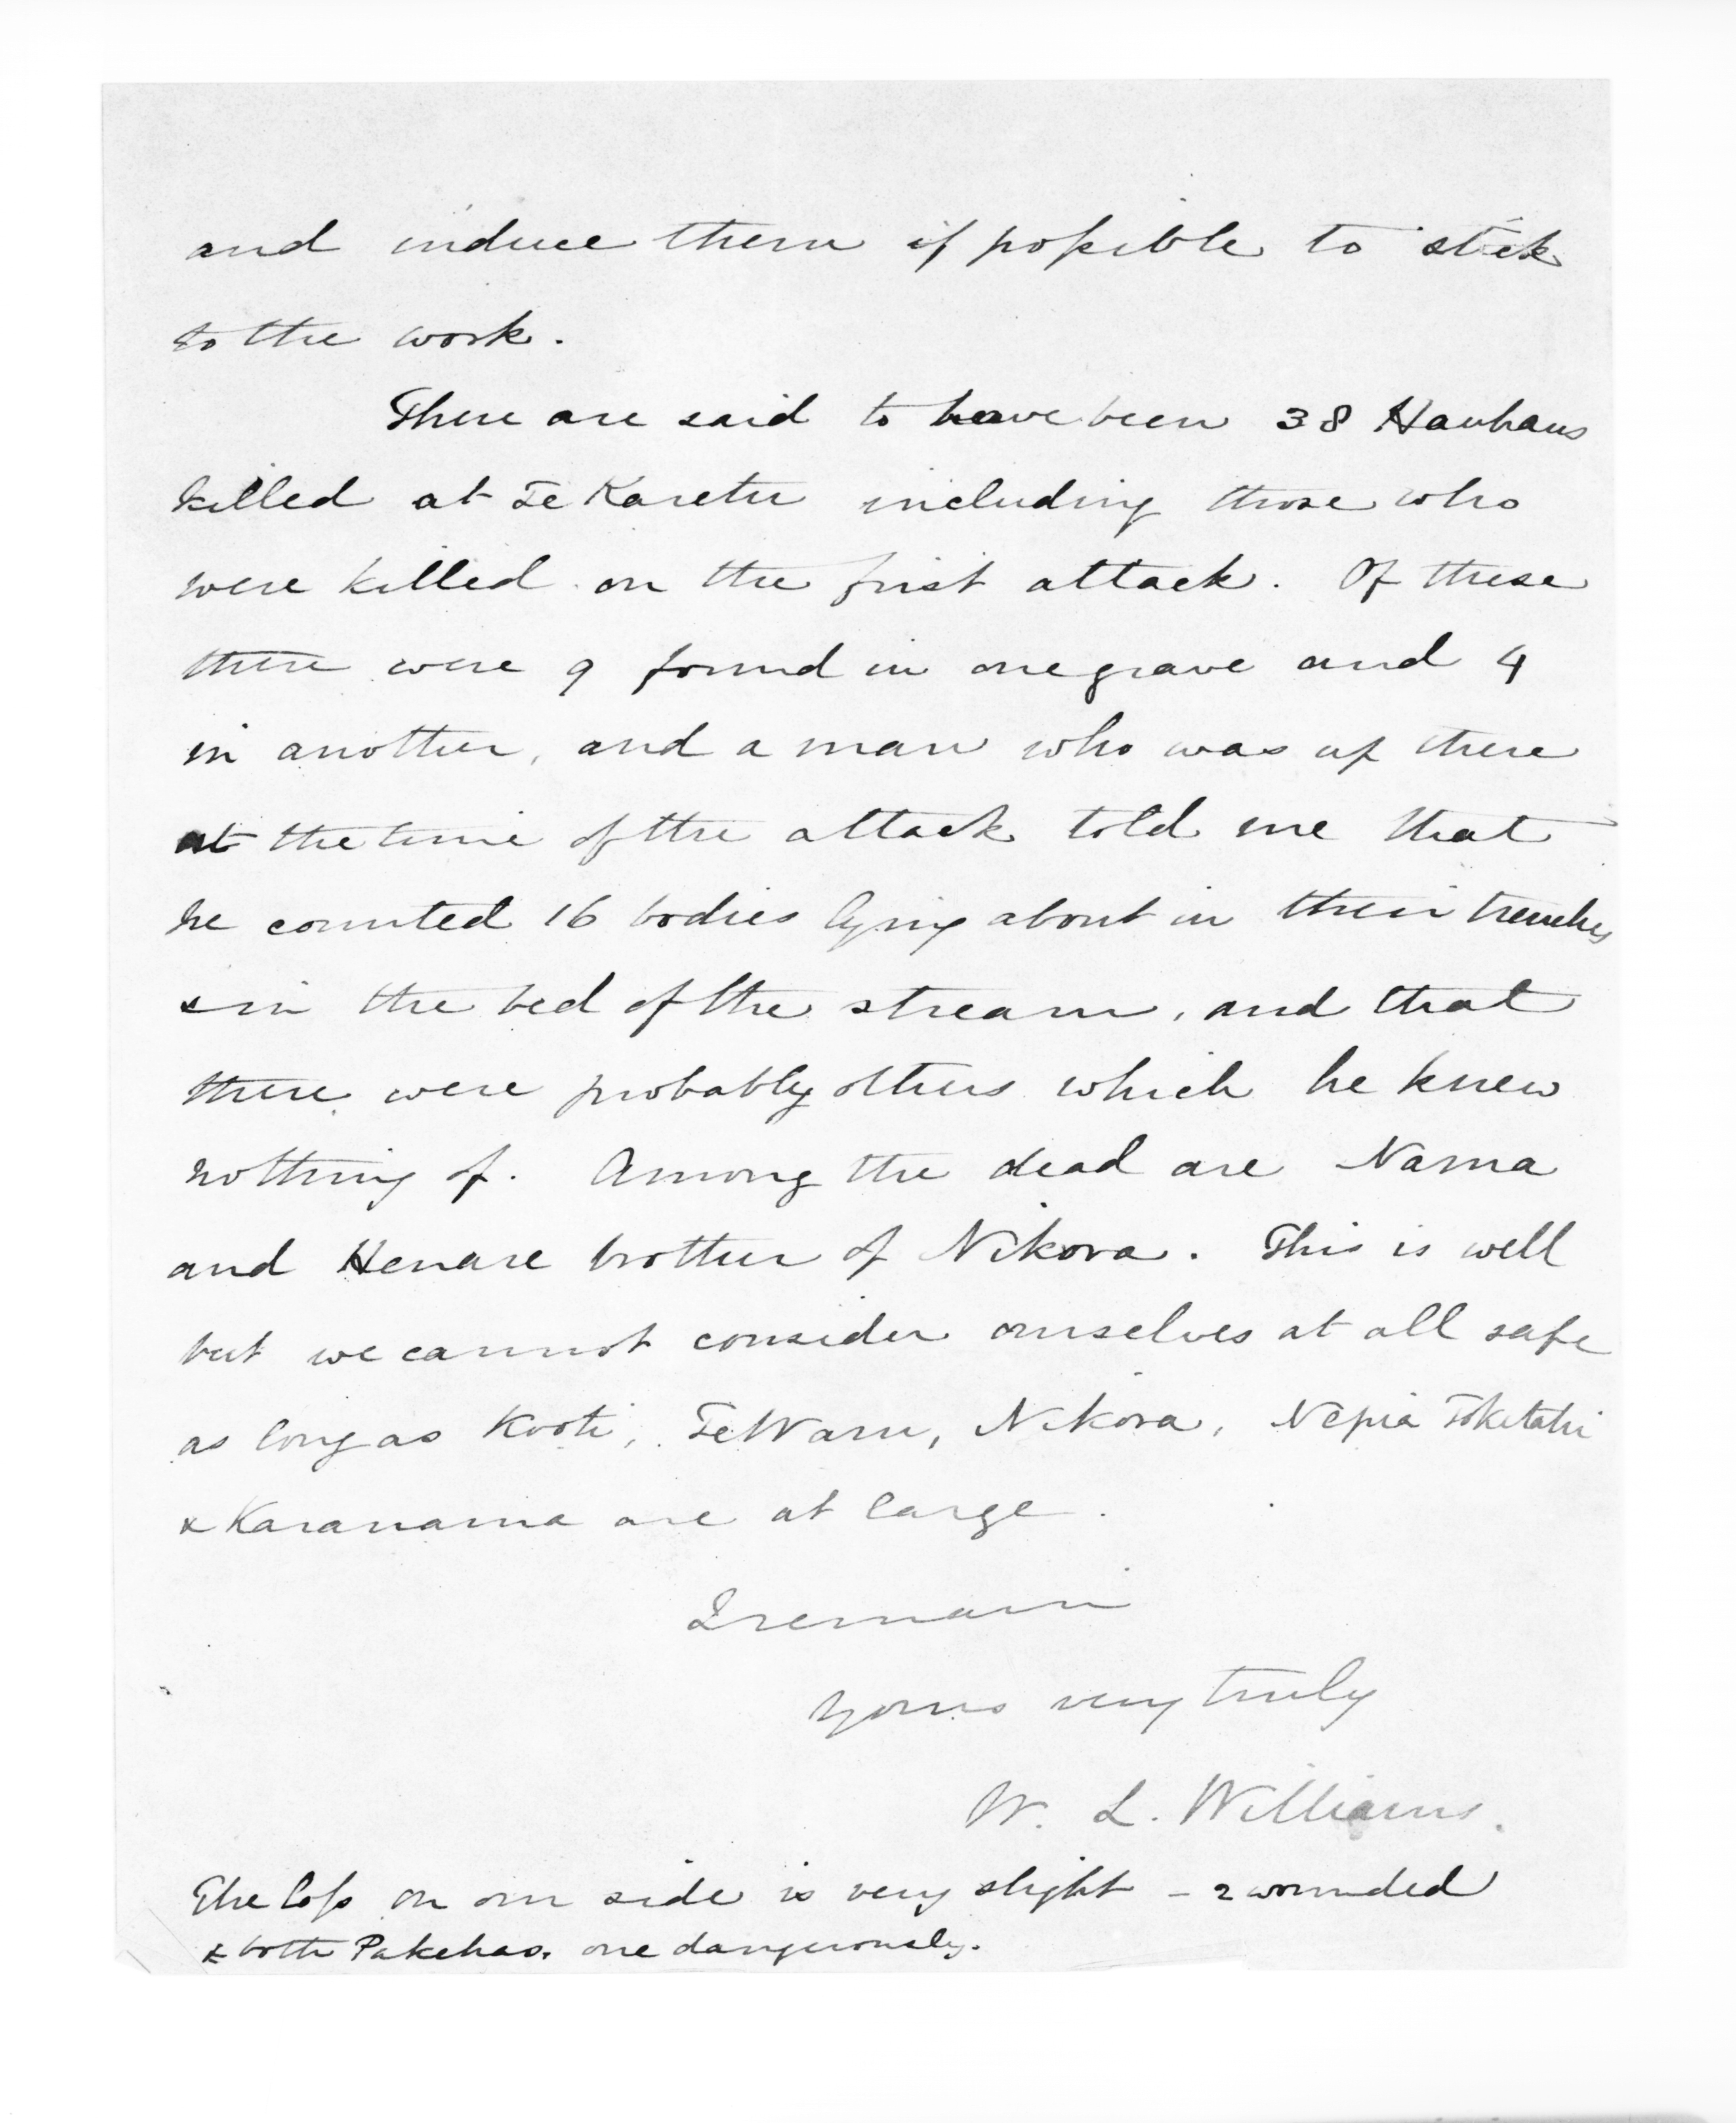 and induce them if possible to stick
to the work.
There are said to have been 38 Hauhaus
killed at Te Karetu including those who
were killed on the first attack. Of these
there were 9 found in one grave and 4
in another, and a man who was up there
at the time of the attack told me that
he counted 16 bodies lying about in their trenches
& in the bed of the stream, and that
there were probably others which he knew
nothing of. Among the dead are Nama
and Henare brother of Nikora. This is well
but we cannot consider ourselves at all safe
as long as Kooti, Te Waru, Nikora, Nepia Tokitahi
& Karanama are at large.
I remain
Yours very truly
W. L. Williams.
The loss on our side is very slight - 2 wounded
& both Pakehas. one dangerously.